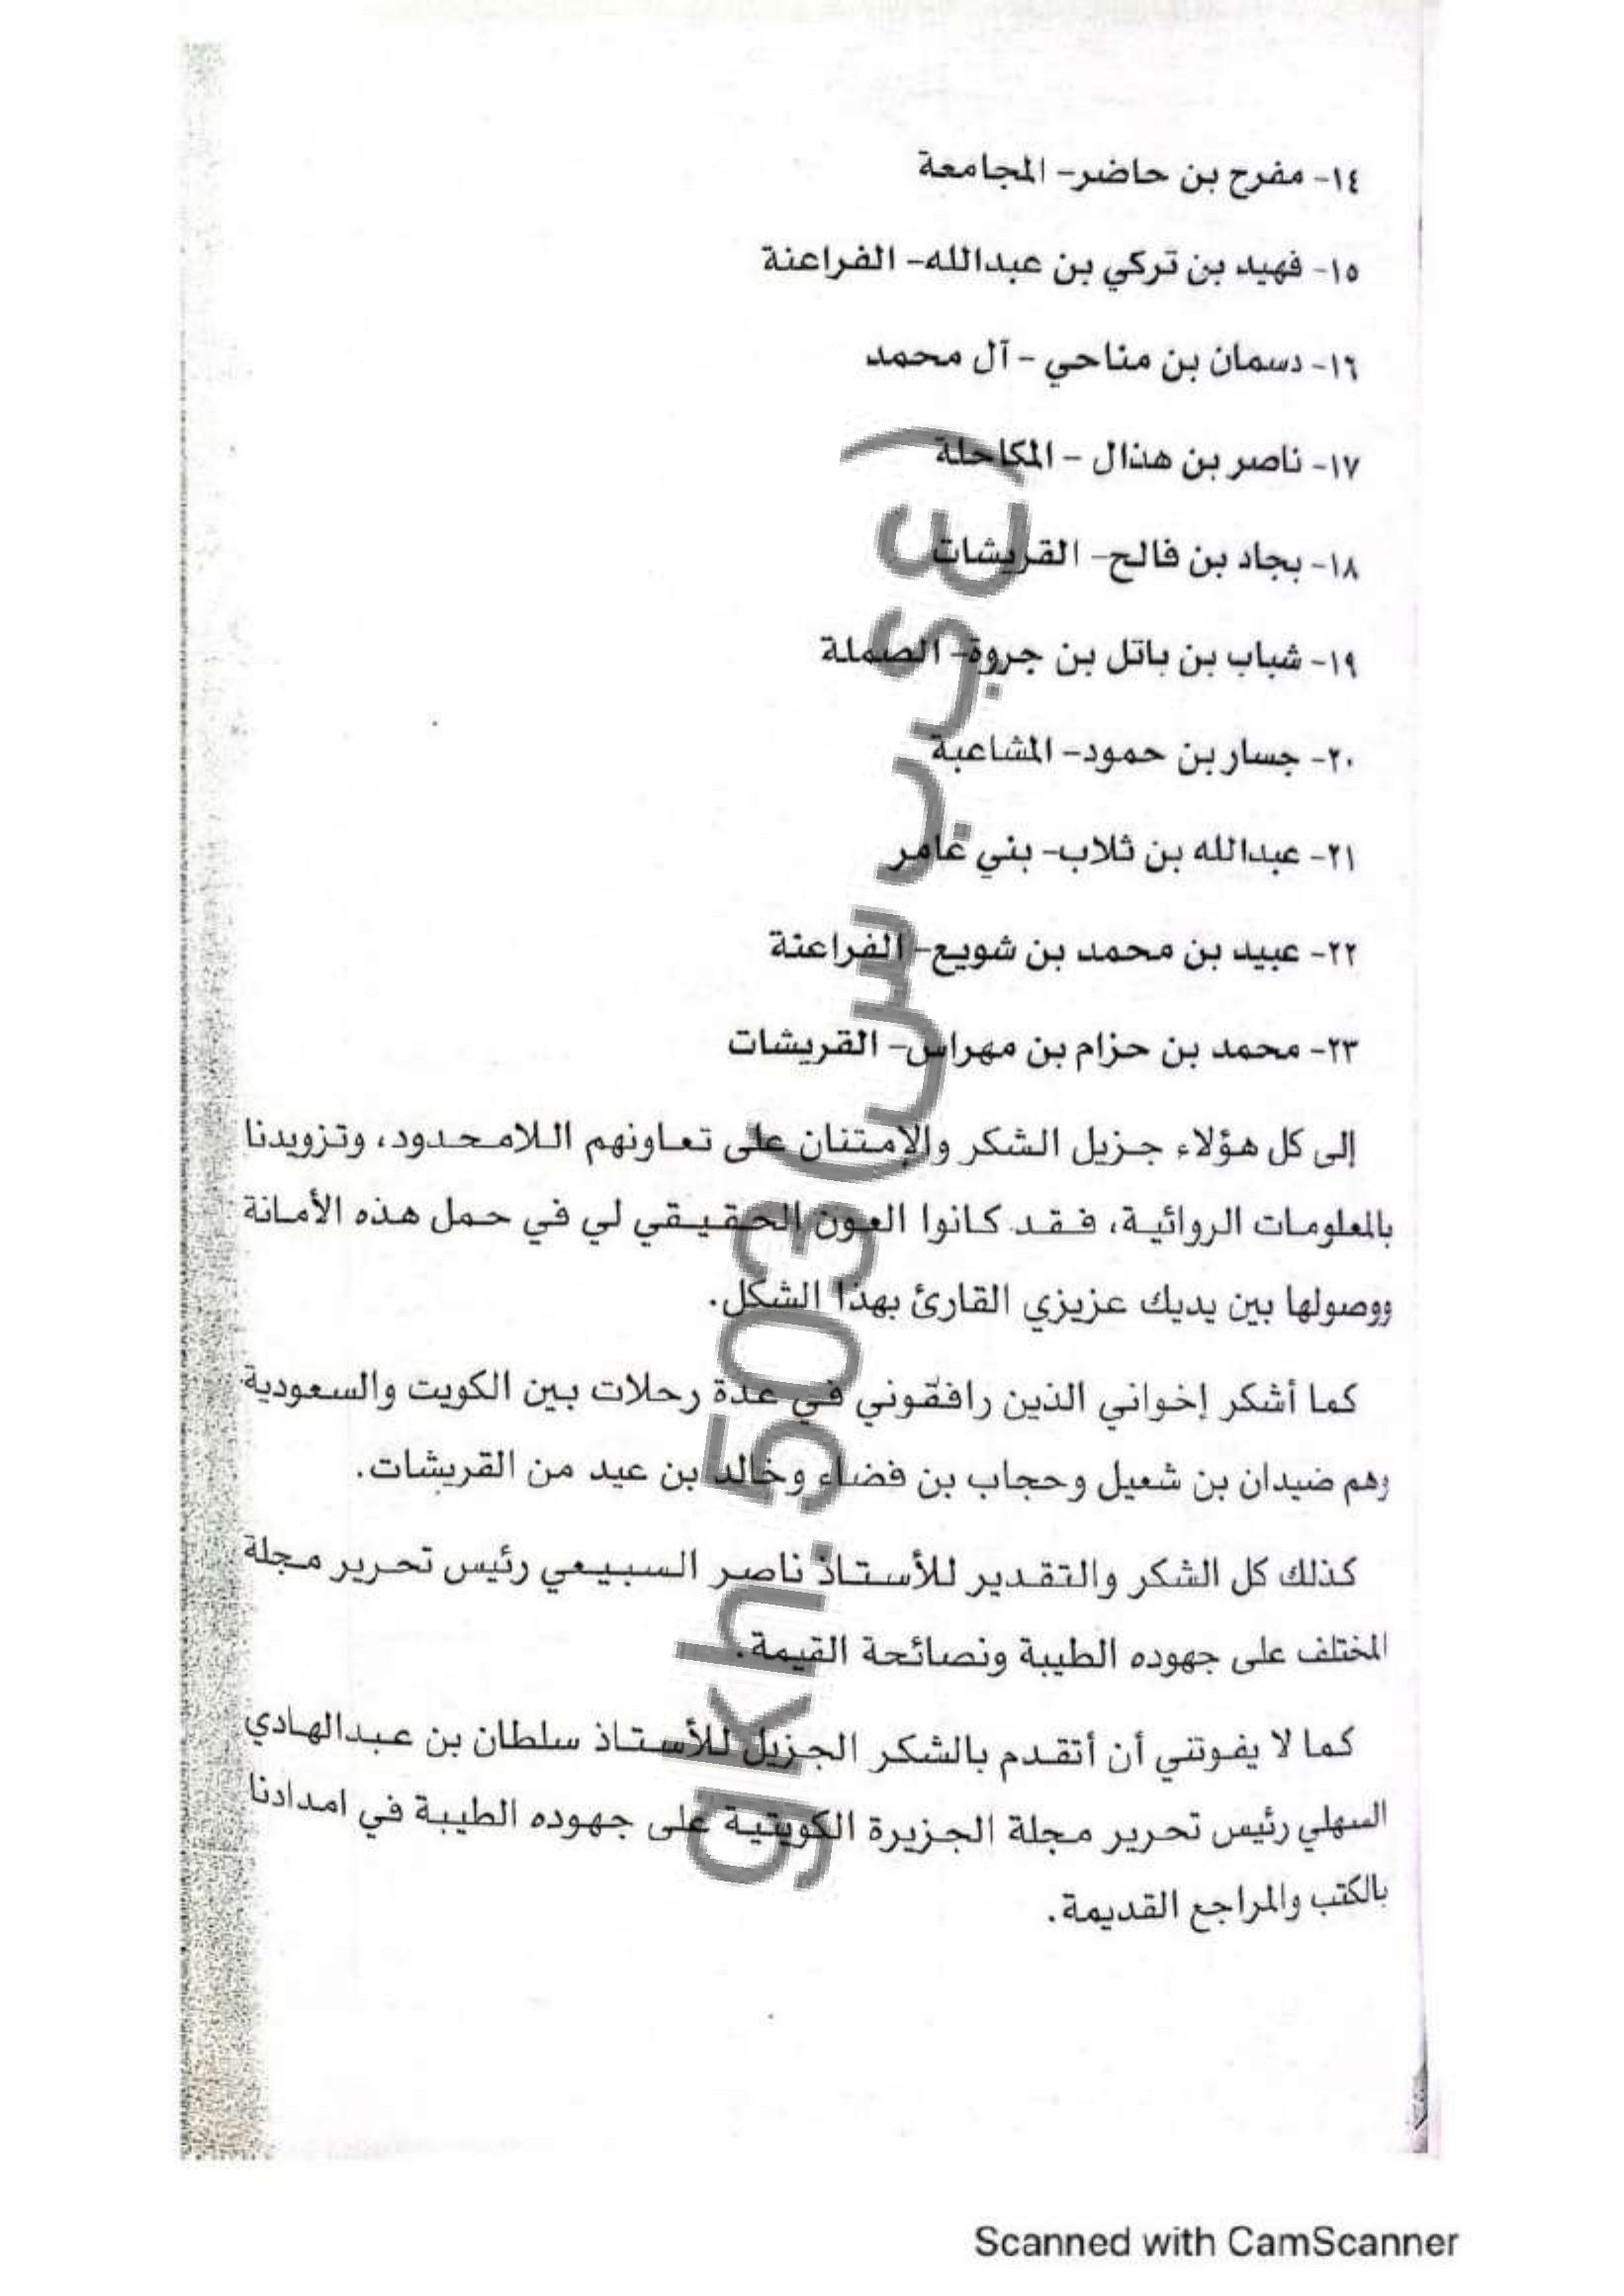 ١٤- مفرح بن حاضر- المجامعة
١٥- فهيد بن تركي بن عبدالله- الفراعنة
١٦- دسمان بن مناحي - آل محمد
١٧- ناصر بن هذال - المكاحلة
١٨- بجاد بن فالح- القريشات
١٩- شباب بن باتل بن جروة- الصملة
٢٠- جسار بن حمود- المشاعبة
٢١- عبدالله بن ثلاب- بني عامر
٢٢- عبيد بن محمد بن شويع- الفراعنة
٢٣- محمد بن حزام بن مهراس- القريشات
إلى كل هؤلاء جزيل الشكر والإمتنان على تعاونهم اللامحدود، وتزويدنا
بالمعلومات الروائية، فقد كانوا العون الحقيقي لي في حمل هذه الأمانة
ووصولها بين يديك عزيزي القارئ بهذا الشكل.
كما أشكر إخواني الذين رافقوني في عدة رحلات بين الكويت والسعودية
وهم ضيدان بن شعيل وحجاب بن فضاء وخالد بن عيد من القريشات.
كذلك كل الشكر والتقدير للأستاذ ناصر السبيعي رئيس تحرير مجلة
المختلف على جهوده الطيبة ونصائحة القيمة.
كما لا يفوتني أن أتقدم بالشكر الجزيل للأستاذ سلطان بن عبدالهادي
السهلي رئيس تحرير مجلة الجزيرة الكويتية على جهوده الطيبة في امدادنا
بالكتب والمراجع القديمة.
gkh.503
Scanned with CamScanner